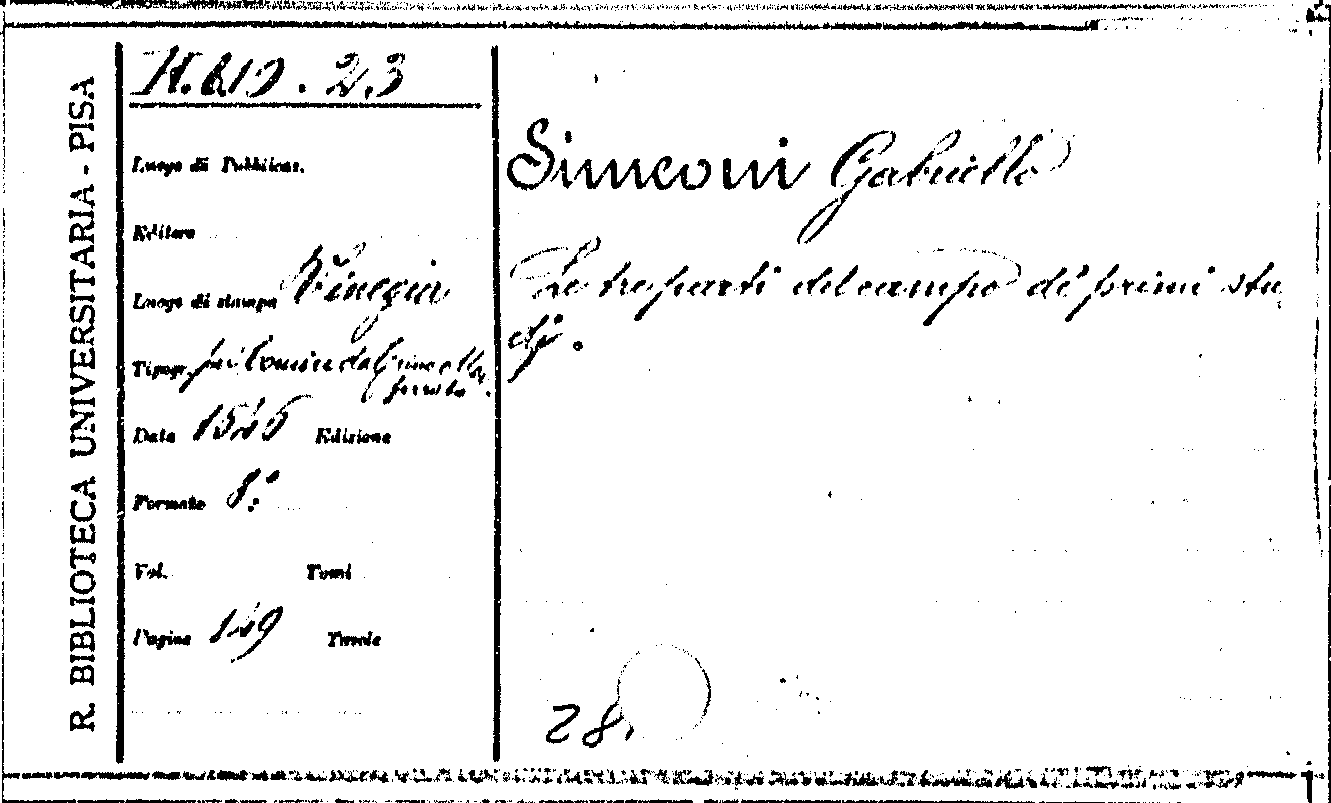 R. BIBLIOTECA UNIVERSITARIA - PISA
H. 619. 23
Luogo di Pubblicaz.
Editore
Luogo di stampa Vinegia
Tipogr. per Comin da
Data 1546 Edizione
Formato 8.°
Vol. Tomi
Pagine 149 Tavole
Simeoni Gabriello
Le tre parti del campo de' primi stu-
dj.
28.